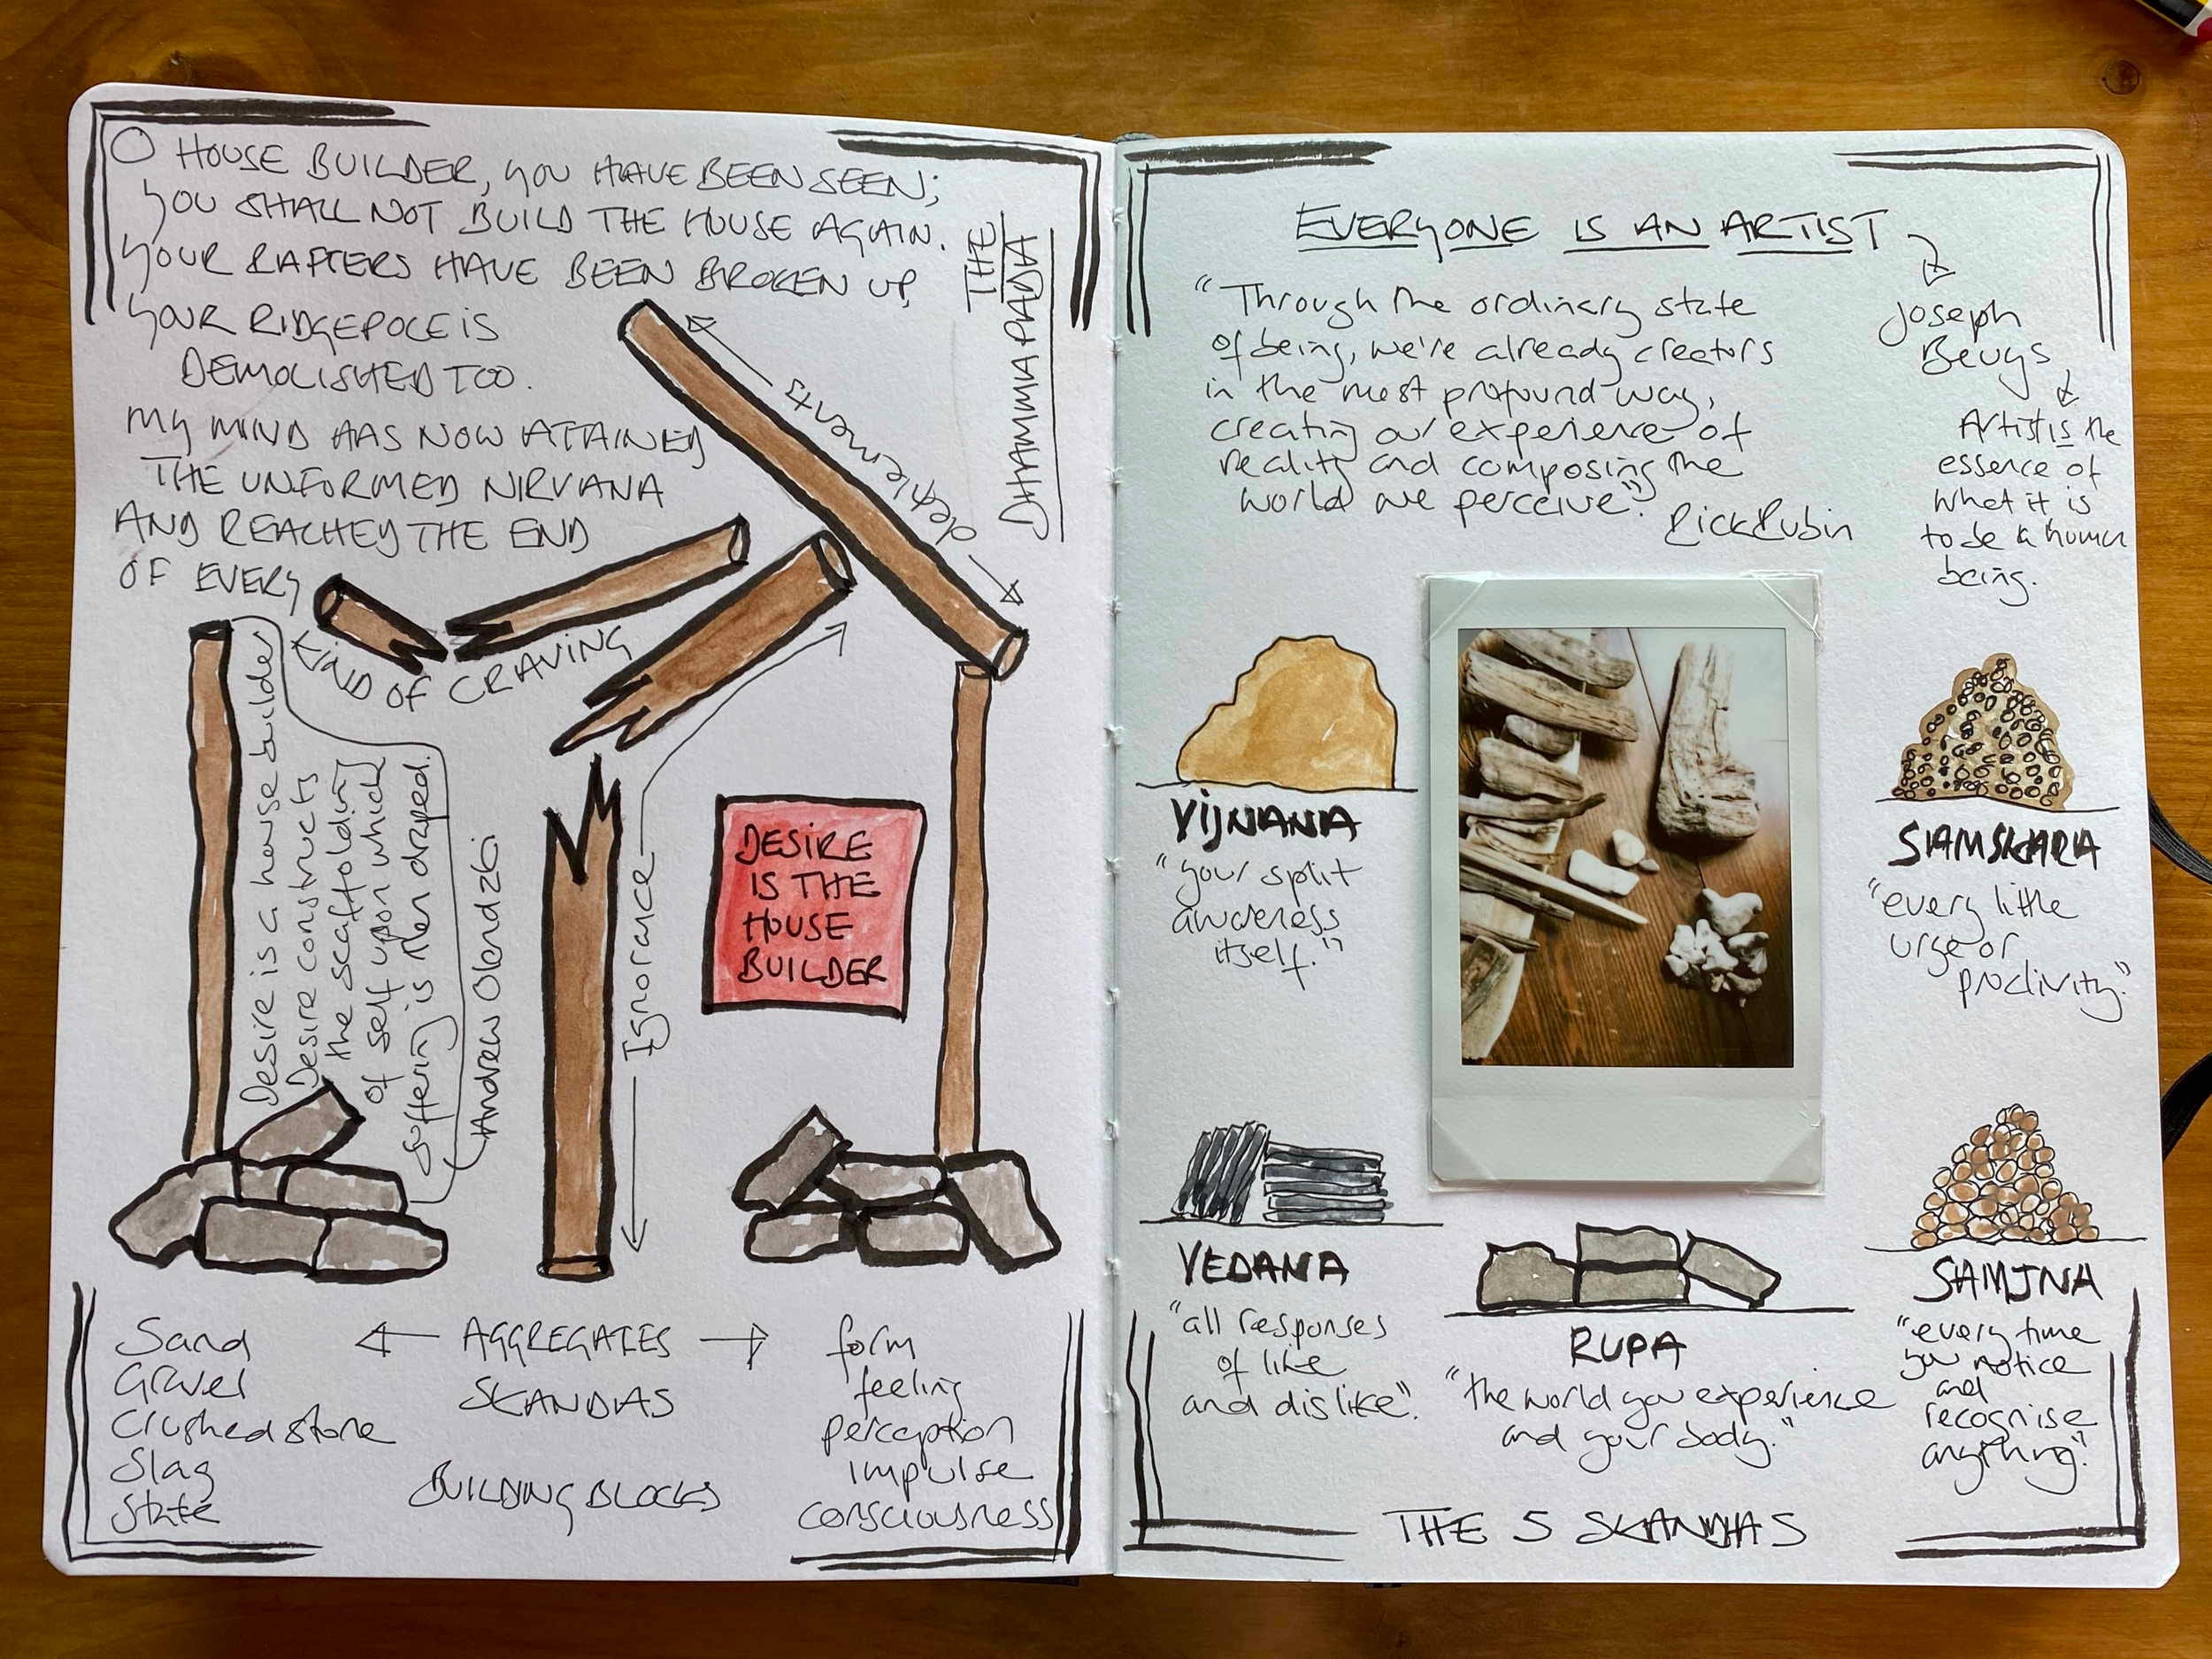 O HOUSE BUILDER, YOU HAVE BEEN SEEN;
YOU SHALL NOT BUILD THE HOUSE AGAIN.
YOUR RAFTERS HAVE BEEN BROKEN UP,
YOUR RIDGEPOLE IS
DEMOLISHED TOO.
MY MIND HAS NOW ATTAINED
THE UNFORMED NIRVANA
AND REACHED THE END
OF EVERY
KIND OF CRAVING
THE
DHAMMAPADA
defilements
Desire is a house builder
Desire constructs
the scaffolding
of self upon which
suffering is then draped.
Andrew Olendzki
Ignorance
DESIRE
IS THE
HOUSE
BUILDER
Sand
Gravel
Crushed stone
Slag
Slate
AGGREGATES
SKANDHAS
BUILDING BLOCKS
form
feeling
perception
impulse
consciousness
EVERYONE IS AN ARTIST
Joseph
Beuys
Artist is the
essence of
what it is
to be a human
being.
"Through the ordinary state
of being, we're already creators
in the most profound way,
creating our experience of
reality and composing the
world we perceive."
Rick Rubin
VIJNANA
"your split
awareness
itself."
SAMSKARA
"every little
urge or
proclivity."
VEDANA
"all responses
of like
and dislike".
RUPA
"the world you experience
and your body."
SAMJNA
"every time
you notice
and
recognise
anything."
THE 5 SKANDHAS